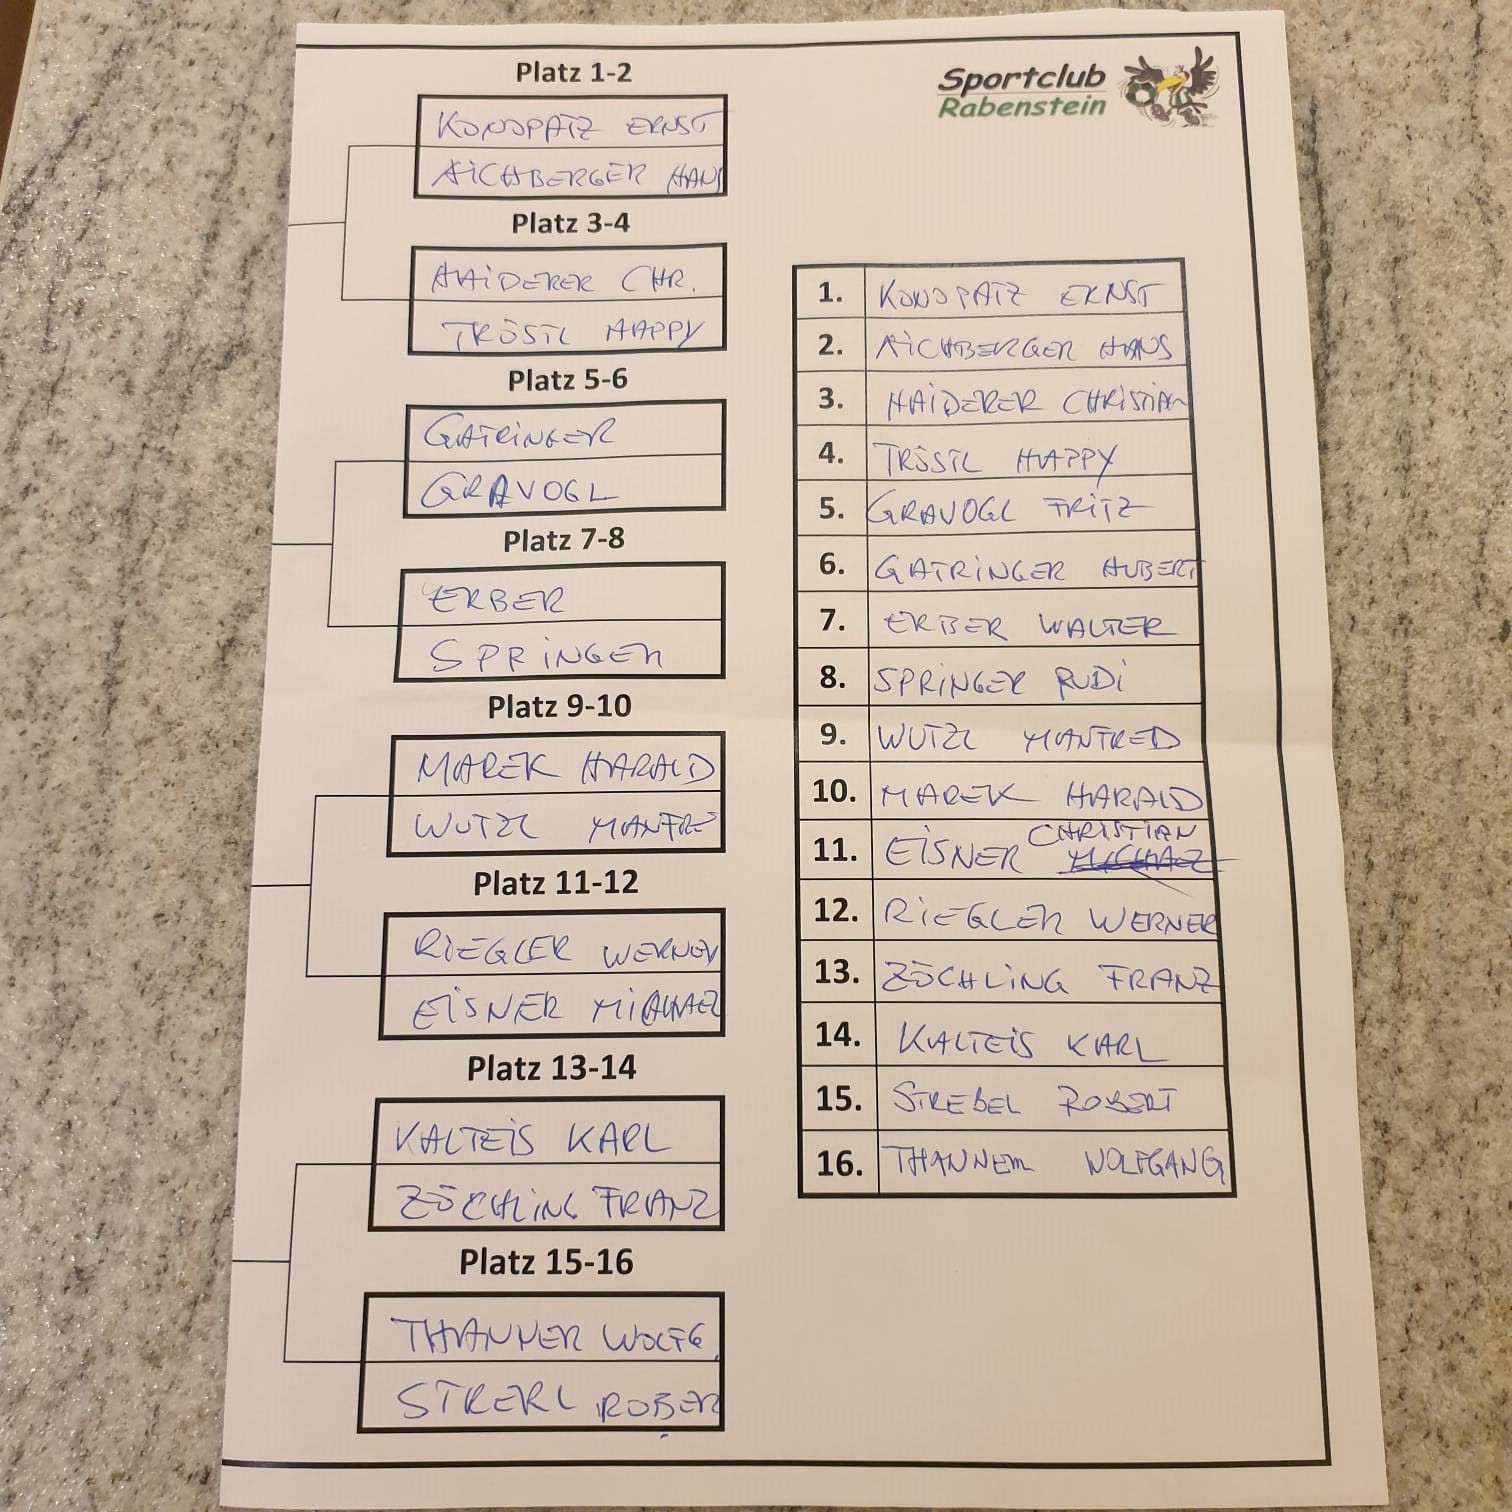 Sportclub
Rabenstein
Platz 1-2
KONOPATZ ERNST
AICHBERGER HANS
Platz 3-4
HAIDERER CHR.
TRÖSTL HAPPY
Platz 5-6
GATRINGER
GRAVOGL
Platz 7-8
ERBER
SPRINGER
Platz 9-10
MAREK HARALD
WUTZL MANFRE
Platz 11-12
RIEGLER WERNER
EISNER MICHAEL
Platz 13-14
KALTEIS KARL
ZÖCHLING FRANZ
Platz 15-16
THANNER WOLFG.
ROBER
1. KONOPATZ ERNST
2. AICHBERGER HANS
3. HAIDERER CHRISTIAN
4. TRÖSTL HAPPY
5. GRAVOGL FRITZ
6. GATRINGER HUBERT
7. ERBER WALTER
8. SPRINGER RUDI
9. WUTZL MANFRED
10. MAREK HARALD
11. EISNER CHRISTIAN MICHAEL
12. RIEGLER WERNER
13. ZÖCHLING FRANZ
14. KALTEIS KARL
15. STREBEL ROBERT
16. THANNER WOLFGANG